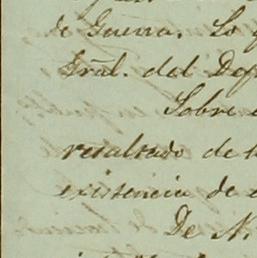 de Guerra. Lo
Gral. del Dep
Sobre
resultado de
existencia de
De N.